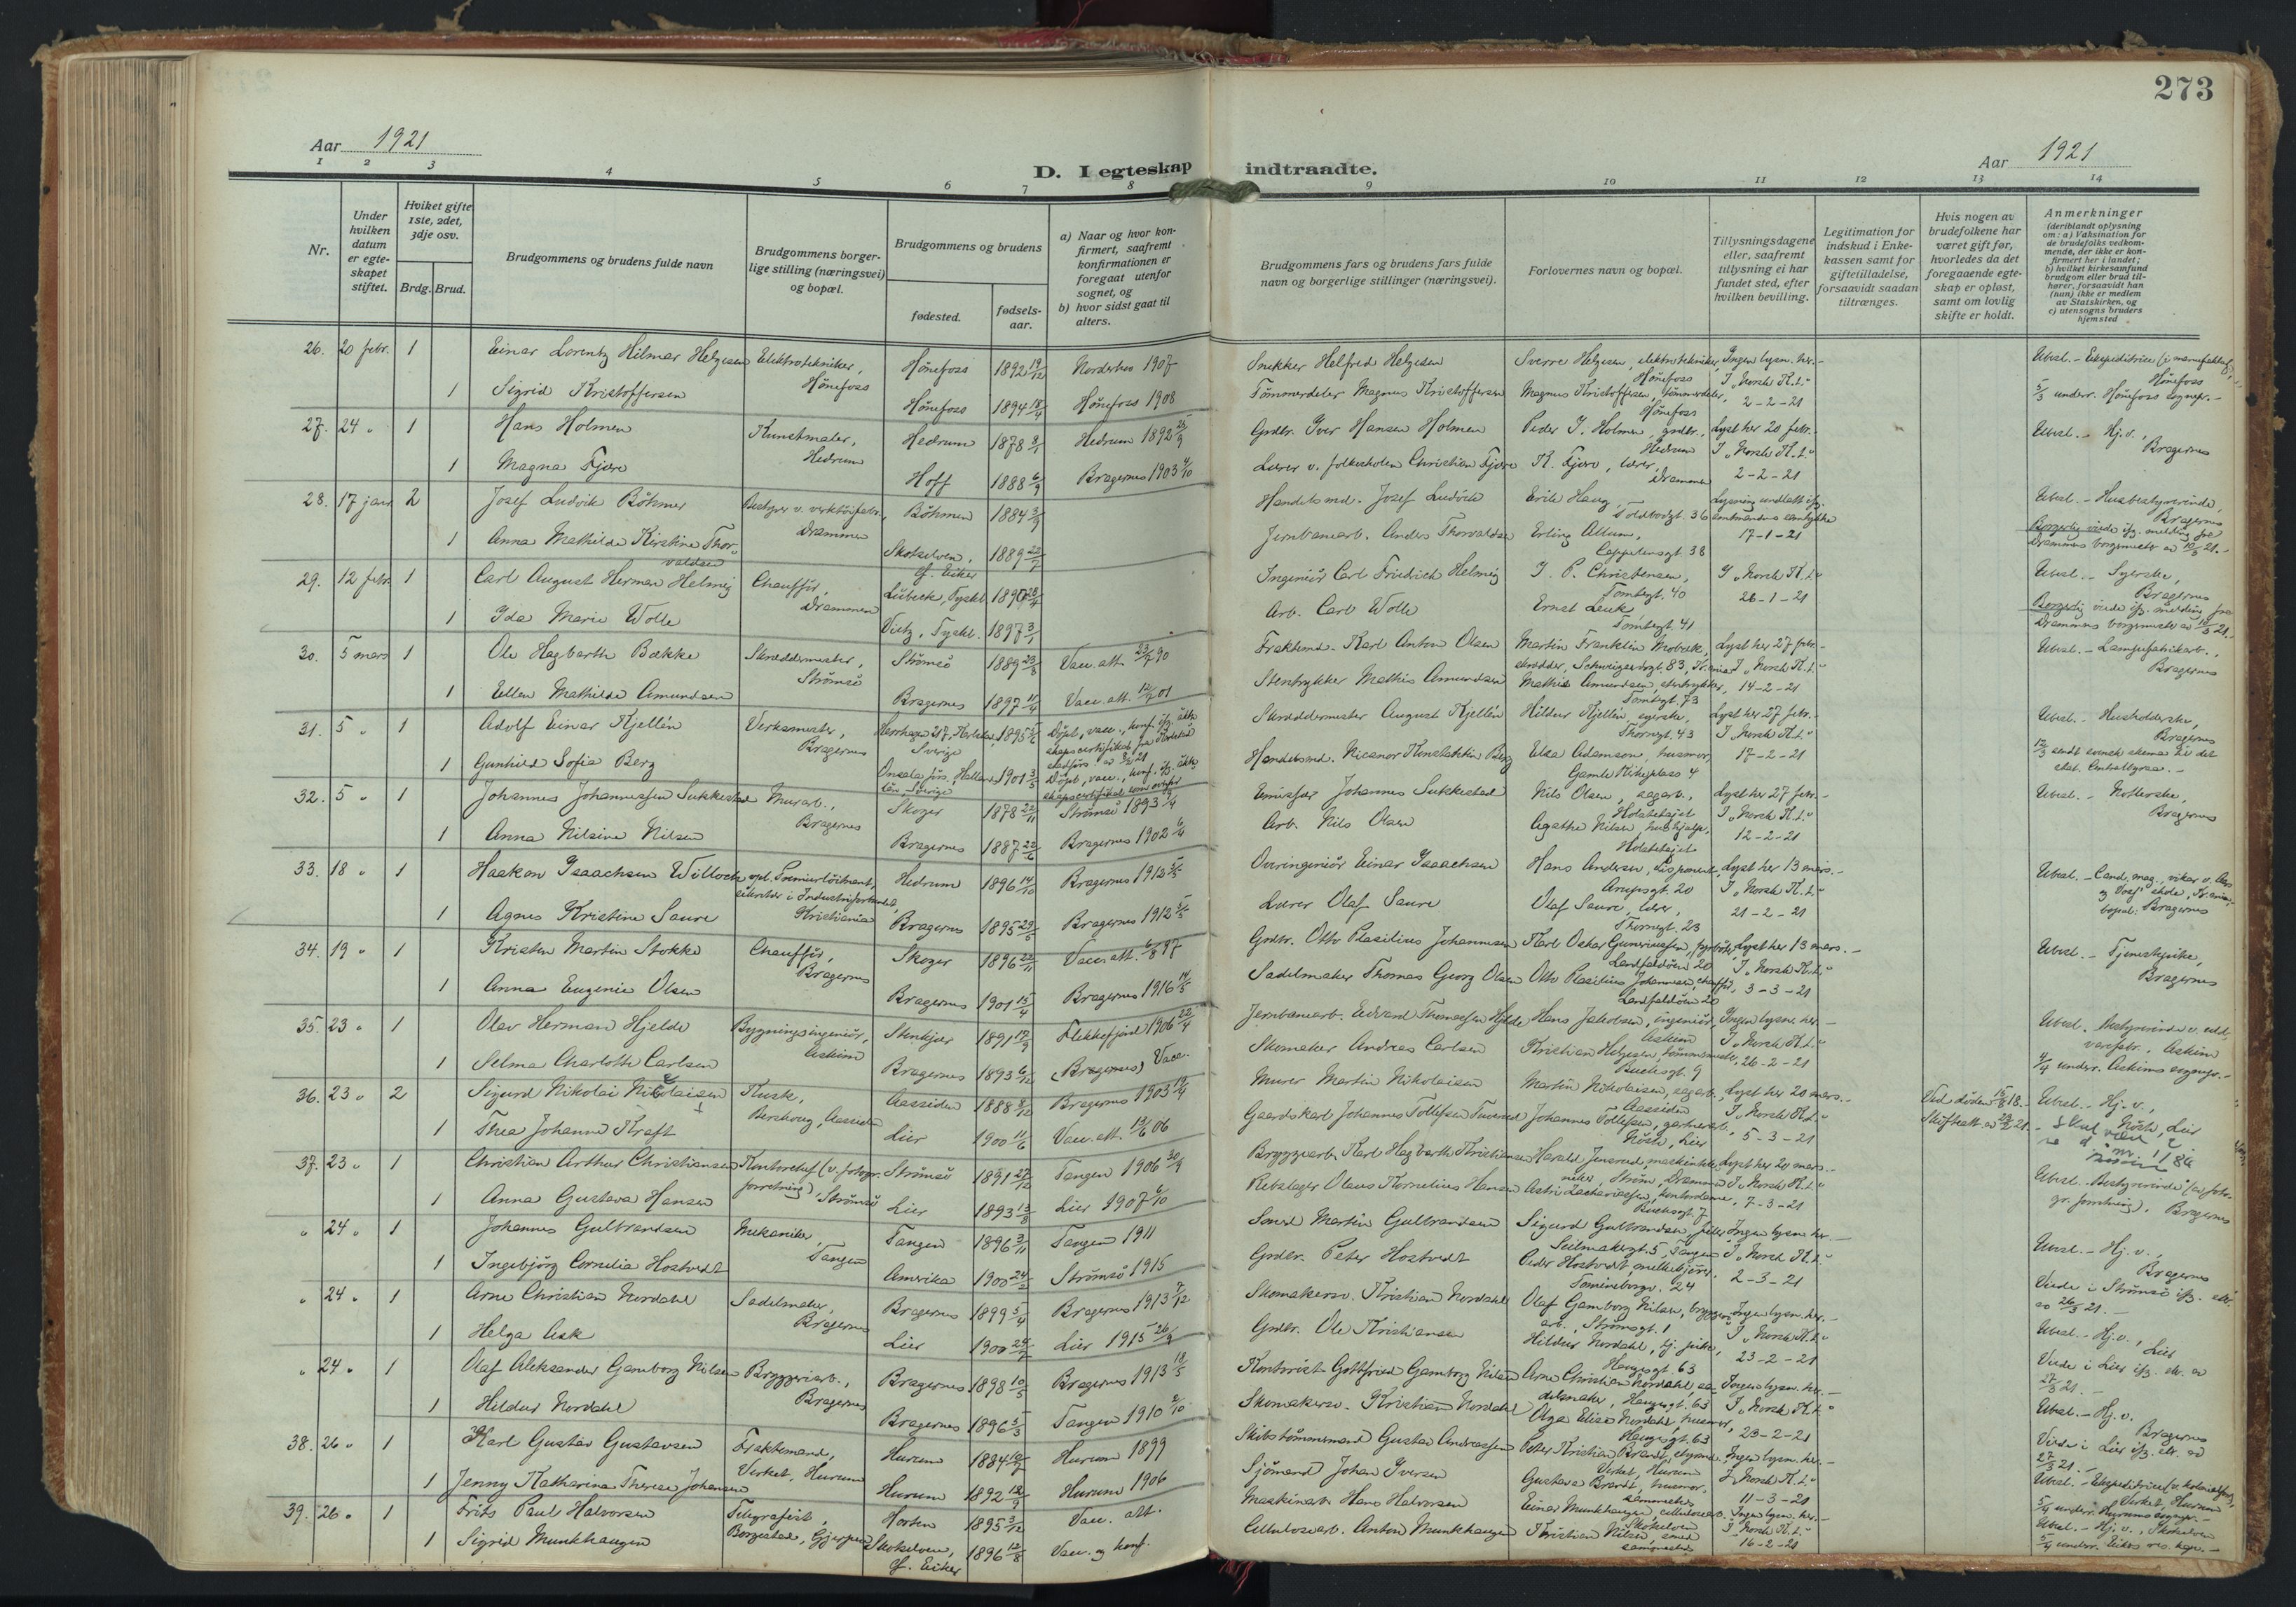 273
Aar 1921
D. I egteskap indtraadte.
Aar 1921
1 2 3 4 5 6 7 8 9 10 11 12 13 14
Nr.
Under hvilken datum er egteskapet stiftet.
Hviket gifte 1ste, 2det, 3dje osv.
Brdg. Brud.
Brudgommens og brudens fulde navn
Brudgommens borgerlige stilling (næringsvei) og bopæl.
Brudgommens og brudens
fødested.
fødselsaar.
a) Naar og hvor konfirmert, saafremt konfirmationen er foregaat utenfor sognet, og
b) hvor sidst gaat til alters.
Brudgommens fars og brudens fars fulde navn og borgerlige stillinger (næringsvei).
Forlovernes navn og bopæl.
Tillysningsdagene eller, saafremt tillysning ei har fundet sted, efter hvilken bevilling.
Legitimation for indskud i Enkekassen samt for giftetilladelse, forsaavidt saadan tiltrænges.
Hvis nogen av brudefolkene har været gift før, hvorledes da det foregaaende egteskap er opløst, samt om lovlig skifte er holdt.
Anmerkninger (deriblandt oplysning om: a) Vaksination for de brudefolks vedkommende, der ikke er konfirmert her i landet; b) hvilket kirkesamfund brudgom eller brud tilhører, forsaavidt han (hun) ikke er medlem av Statskirken, og c) utensogns bruders hjemsted
26. 20 febr. 1 Einar Lorentz Hilmar Helgesen Elektrotekniker, Hønefoss Hønefoss 1892 19/12 Norderhov 1907 Snekker Helfred Helgesen Sverre Helgesen, elektrotekniker, Hønefoss Ingen lysn. her.-
1 Sigrid Kristoffersen Hønefoss 1894 18/4 Hønefoss 1908 Tømmerdeler Magnus Kristoffersen Magnus Kristoffersen, tømmerdeler, Hønefoss I "Norsk K.t." 2-2-21
27. 24 " 1 Hans Holmen Kunstmaler, Hedrum Hedrum 1878 8/1 Hedrum 1892 25/9 Grdbr. Iver Hansen Holmen Peder I. Holmen, grdbr., Hedrum Lyst her 20 febr.- Ubesl. - Hj.v., Bragernes
1 Magna Fjære Hoff 1888 6/9 Bragernes 1903 4/10 Lærer v. folkeskolen Christian Fjære K. Fjære, lærer, Drammen I "Norsk K.t." 2-2-21
28. 17 jan. 2 Josef Ludvik Böhmer Bestyrer v. verktøifabr., Drammen Böhmen 1884 3/9 Handelsmd. Josef Ludvik Erik Haug, Toldbodgt. 36 Ubesl. - Husbestyrerinde, Bragernes
1 Anna Mathilde Kirstine Thorvaldsen Skotselven, Ø. Eiker 1889 22/7 Jernbanearb. Anders Thorvaldsen Erling Allum, Cappelensgt. 38 17-1-21 Borgerlig viede ifg. melding fra Drammens borgermester
29. 12 febr. 1 Carl August Herman Helmig Chauffør, Drammen Lübeck, Tyskl. 1890 Ingeniør Carl Friedrich Helmig I. P. Christensen, Tomtegt. 40 I "Norsk K.t." 26-1-21 Ubesl. - Syerske, Bragernes
1 Ida Marie Wolle Vietz, Tyskl. 1897 3/1 Arb. Carl Wolle Ernst Leuk, Tomtegt. 41 Borgerlig viede ifg. melding fra Drammens borgermester
30. 5 mars 1 Ole Hagbarth Bække Skræddermester, Strømsø Strømsø 1889 23/8 Vacc. att. 23/7 90 Fraktemd. Karl Anton Olsen Martin Franklin Mobæk, skrædder, Schweigaardsgt. 83, Kr.ania Lyst her 27 febr.- Ubesl. - Lampefabrikarb., Bragernes
1 Ellen Mathilde Amundsen Bragernes 1897 11/4 Vacc. att. 12/7 01 Stentrykker Mathis Amundsen Mathis Amundsen, stentrykker, Tomtegt. 73 I "Norsk K.t." 14-2-21
31. 5 " 1 Adolf Einar Kjellén Verksmester, Bragernes Herrhagen 217, Karlstad, Sverige 1895 Døpt, vacc., konf. ifg. äktenskapscertifikat fra Karlstad Skræddermester August Kjellén Hildur Kjellén, syerske, Thornegt. 43 Lyst her 27 febr.- Ubesl. - Husholderske, Bragernes
1 Gunhild Sofia Berg Onsala förs., Hallands län, Sverige 1901 3/5 Døpt, vacc., konf. ifg. äktenskapscertifikat som ovenfor Handelsmd. Nicanor Konstantin Berg Elsa Adamson, husmor, Gamle Kirkeplass 4 I "Norsk K.t." 17-2-21
32. 5 " 1 Johannes Johannessen Sukkestad Murarb., Bragernes Skoger 1878 22/11 Strømsø 1893 Emissær Johannes Sukkestad Nils Olsen, sagarb., Lyst her 27 febr.- Ubesl. - Bragernes
1 Anna Nilsine Nilsen Bragernes 1887 22/6 Bragernes 1902 6/4 Arb. Nils Olsen Agathe Nilsen, I "Norsk K.t." 12-2-21
33. 18 " 1 Haakon Isaachsen Willoch Premierløitnant, sekretær i Industriforbundet, Kristiania Hedrum 1896 14/10 Bragernes 1912 Overingeniør Einar Isaachsen Hans Andersen, disponent, Arupsgt. 20 Lyst her 13 mars.- Ubesl. - Cand. mag., bopæl: Bragernes
1 Agnes Kristine Saure Bragernes 1895 29/5 Bragernes 1912 5/5 Lærer Olaf Saure Olaf Saure, lærer, Thornegt. 23 I "Norsk K.t." 21-2-21
34. 19 " 1 Kristen Martin Stokke Chauffør, Bragernes Skoger 1896 22/11 Vacc. att. 6/8 97 Grdbr. Otto Basilius Johannesen Karl Oskar Gunerussen, fyrbøter, Landfaldøen 20 Lyst her 13 mars.- Ubesl. - Tjenestepike, Bragernes
1 Anna Eugenie Olsen Bragernes 1901 15/4 Bragernes 1916 14/5 Sadelmaker Thomas Georg Olsen Otto Basilius Johannesen, chauffør, Landfaldøen 20 I "Norsk K.t." 3-3-21
35. 23 " 1 Olav Herman Hjelde Bygningsingeniør, Askim Stenkjær 1891 17/9 Flekkefjord 1906 22/4 Jernbanearb. Edvard Thomassen Hjelde Hans Jakobsen, ingeniør, Askim Ingen lysn. her.- Askim
1 Selma Charlotte Carlsen Bragernes 1893 6/12 (Bragernes) Vacc. Skomaker Andreas Carlsen Kristian Helgesen, tømmermester, Bucksgt. 9 I "Norsk K.t." 26-2-21 underr. Askims sognepr.-
36. 23 " 2 Sigurd Nikolai Nikolaisen Kusk, Aassiden Aassiden 1888 8/12 Bragernes 1903 Murer Martin Nikolaisen Martin Nikolaisen, sagarb., Aassiden Lyst her 20 mars.- Ved døden 15/8 18. Ubesl. - Hj.v., Lier
1 Thea Johanne Kraft Lier 1900 11/6 Vacc. att. 13/6 06 Gaardskarl Johannes Tollefsen Johannes Tollefsen, gartnerarb., Lier I "Norsk K.t." 5-3-21 Skifteatt.
37. 23 " 1 Christian Arthur Christiansen Kontorchef (v. fotogr. forretning), Strømsø Strømsø 1891 27/12 Tangen 1906 30/9 Bryggearb. Karl Hagbarth Kristiansen Harald Jensrud, Drammen Lyst her 20 mars.-
1 Anna Gustava Hansen Lier 1893 13/8 Lier 1907 6/10 Rebslager Olaus Kornelius Hansen Astri Zachariassen, kontordame, Bucksgt. 7 I "Norsk K.t." 7-3-21 Bragernes
" 24 " 1 Johannes Gulbrandsen Mekaniker, Tangen Tangen 1896 3/11 Tangen 1911 Smed Martin Gulbrandsen Sigurd Gulbrandsen, filer, Seilmakergt. 5, Tangen Ingen lysn. her.- Ubesl. - Hj.v., Bragernes
1 Ingebjørg Cornelia Hostvedt Amerika 1900 24/2 Strømsø 1915 Grdbr. Peter Hostvedt Peder Hostvedt, melkekjører, I "Norsk K.t." 2-3-21 Viede i Strømsø
" 24 " 1 Arne Christian Nordahl Sadelmaker, Bragernes Bragernes 1899 5/4 Bragernes 1913 7/12 Skomakersv. Kristian Nordahl Olaf Gamborg Nilsen, bryggeriarb., Strømsgt. 1 Ingen lysn. her.- Ubesl. - Hj.v., Lier
1 Helga Ask Lier 1900 Lier 1915 26/9 Grdbr. Ole Kristiansen Hildur Nordahl, Haugesgt. 63 I "Norsk K.t." 23-2-21 Viede i Lier 27/3 21.-
" 24 " 1 Olaf Aleksander Gamborg Nilsen Bryggeriarb., Bragernes Bragernes 1898 10/5 Bragernes 1913 18/5 Kontorist Gottfried Gamborg Nilsen Arne Christian Nordahl, sadelmaker, Haugesgt. 63 Ingen lysn. her.- Ubesl. - Hj.v. Bragernes
1 Hildur Nordahl Bragernes 1896 5/3 Tangen 1910 2/10 Skomakersv. Kristian Nordahl Olga Elise Nordahl, husmor, Haugesgt. 63 I "Norsk K.t." 23-2-21 Viede i Lier 27/3 21.-
38. 26 " 1 Karl Gustav Gustavsen Fraktemand, Verket, Hurum Hurum 1884 Hurum 1899 Skibstømmermand Gustav Andreassen Peter Kristian Brandt, Verket, Hurum Ingen lysn. her.- Verket, Hurum
1 Jenny Katharina Therese Johansen Hurum 1892 12/9 Hurum 1906 Sjømand Johan Iversen Gustava Brandt, husmor, sammesteds I "Norsk K.t." 11-3-21 underr. Hurums sognepr.-
39. 26 " 1 Frits Paul Halvorsen Telegrafist, Borgestad, Gjerpen Horten 1895 3/12 Vacc. att. Maskinarb. Hans Halvorsen Einar Munkhaugen, cellulosearb., Skotselven Ingen lysn. her.- Ubesl. - Hj.v., Skotselven
1 Sigrid Munkhaugen Skotselven, Ø. Eiker 1896 12/8 Vacc. og konf. Cellulosearb. Anton Munkhaugen Kristian Nilsen, smed, sammesteds I "Norsk K.t." 16-2-21 underr. Eikers res. kap.-